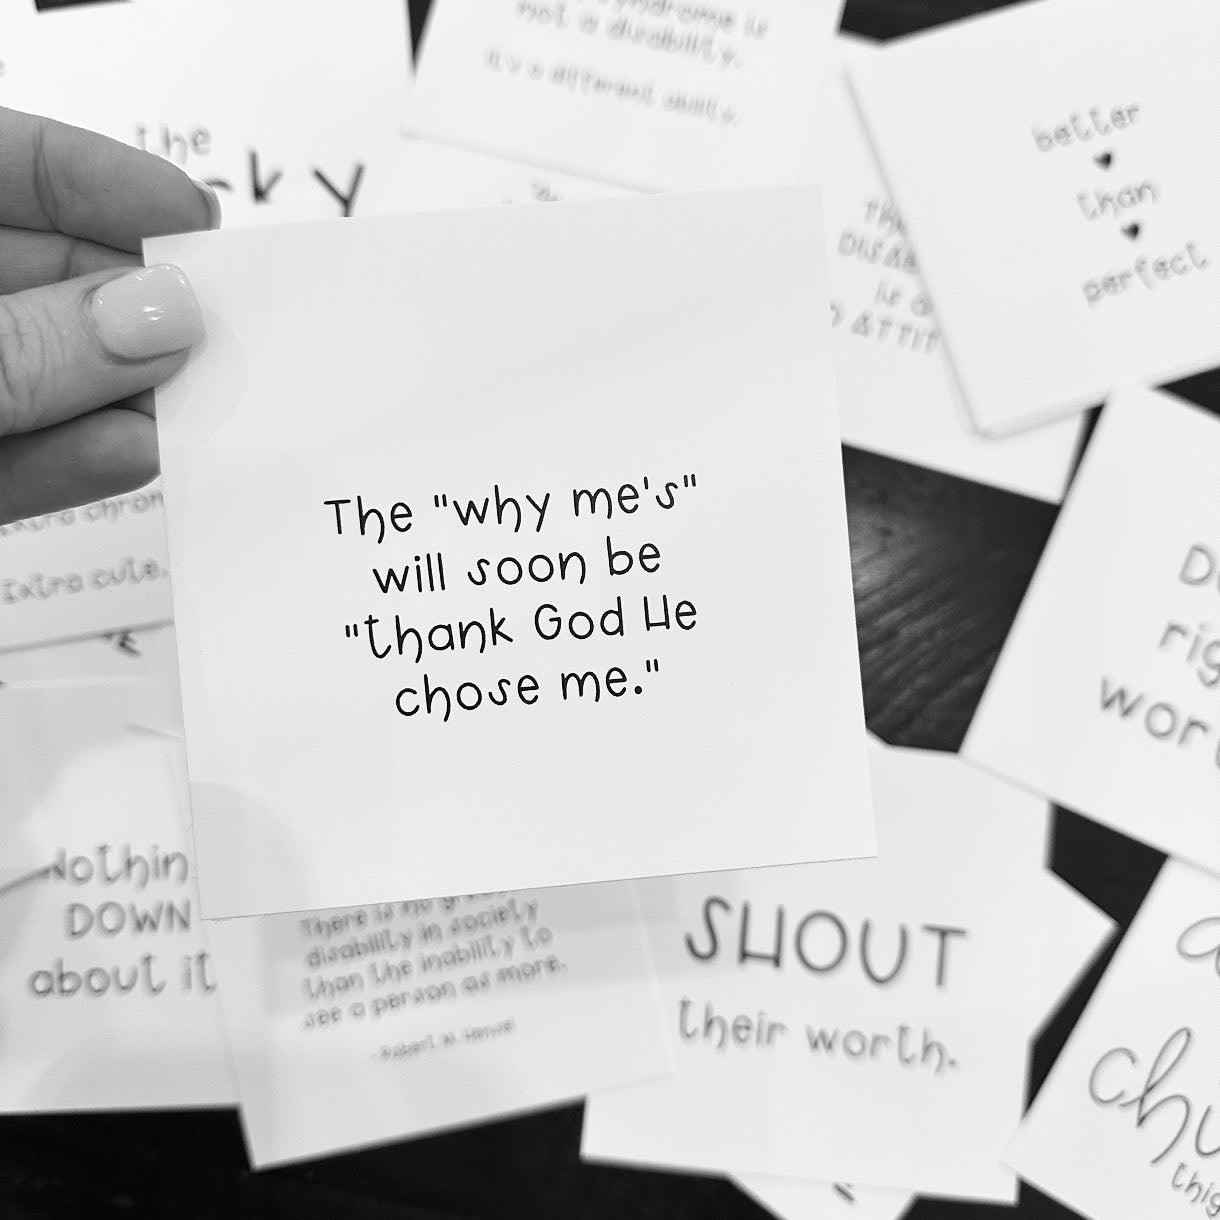 syndrome is
not a disability.
it's a different ability.
the
ky
better
than
perfect
THE
is a
ATTIT
The "why me's"
will soon be
"thank God He
chose me."
extra chrom
Extra cute.
Nothin
DOWN
about it
There is no great
disability in society
than the inability to
see a person as more.
-Robert M. Hensel
SHOUT
their worth.
rig
wor
chu
thig